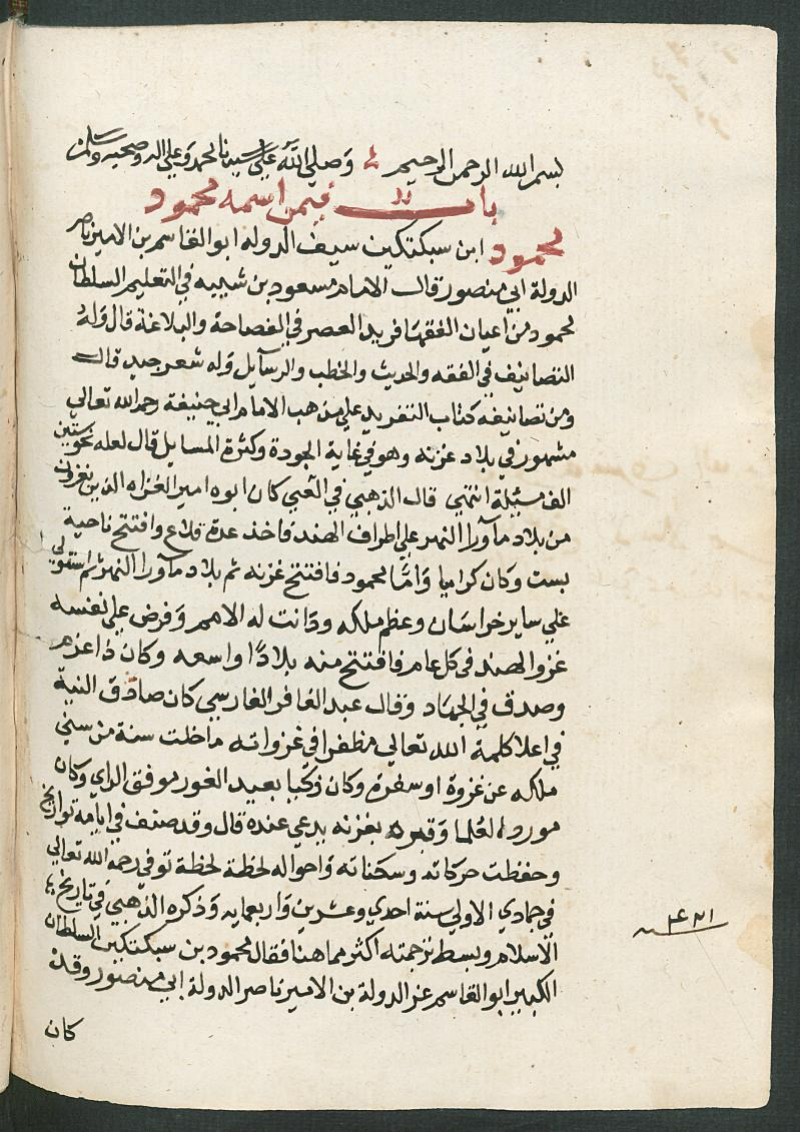 بسم الله الرحمن الرحيم وصلي الله علي سيدنا محمد وعلي اله وصحبه وسلم
باب فيمن اسمه محمود
محمود ابن سبكتكين سيف الدوله ابو القاسم بن الامير ناصر
الدولة ابي منصور قال الامام مسعود بن شيبه في التعليم السلطان
محمود من اعيان الفقها فريد العصر في الفصاحة والبلاغة قال وله
التصانيف في الفقه والحديث والخطب والرسايل وله شعر جيد قال
ومن تصانيفه كتاب التفريد علي مذهب الامام ابي حنيفة رحمه الله تعالي
مشهور في بلاد غزنه وهو في غاية الجودة وكثرة المسايل قال لعله نحو ستين
الف مسئلة انتهي قال الذهبي في العبر كان ابوه امير الغزاه الذين يغزون
من بلاد ماورا النهر علي اطراف الهند فاخذ عدة قلاع وافتتح ناحية
بست وكان كراميا وامّا محمود فافتتح غزنه ثم بلاد ماورا النهر ثم استولي
علي ساير خراسان وعظم ملكه ودانت له الامم وفرض علي نفسه
غزو الهند في كل عام فافتتح منه بلادًا واسعه وكان ذا عزم
وصدق في الجهاد وقال عبد الغافر الفارسي كان صادق النية
في اعلا كلمة الله تعالي مظفرا في غزواته ماخلت سنة من سني
ملكه عن غزوة او سفرة وكان ذكيا بعيد الغور موفق الراي وكان
مورد العلما وقبره بغزنه يدعي عنده قال وقد صنف في ايامه تواريخ
وحفظت حركاته وسكناته واحواله لحظة لحظة توفي رحمه الله تعالي
في جمادي الاولي سنة احدي وعشرين واربعمايه وذكره الذهبي في تاريخ
الاسلام وبسط ترجمته اكثر مما هنا فقال محمود بن سبكتكين السلطان
الكبير ابو القاسم عز الدولة بن الامير ناصر الدولة ابي منصور وقد
كان
٤٢١